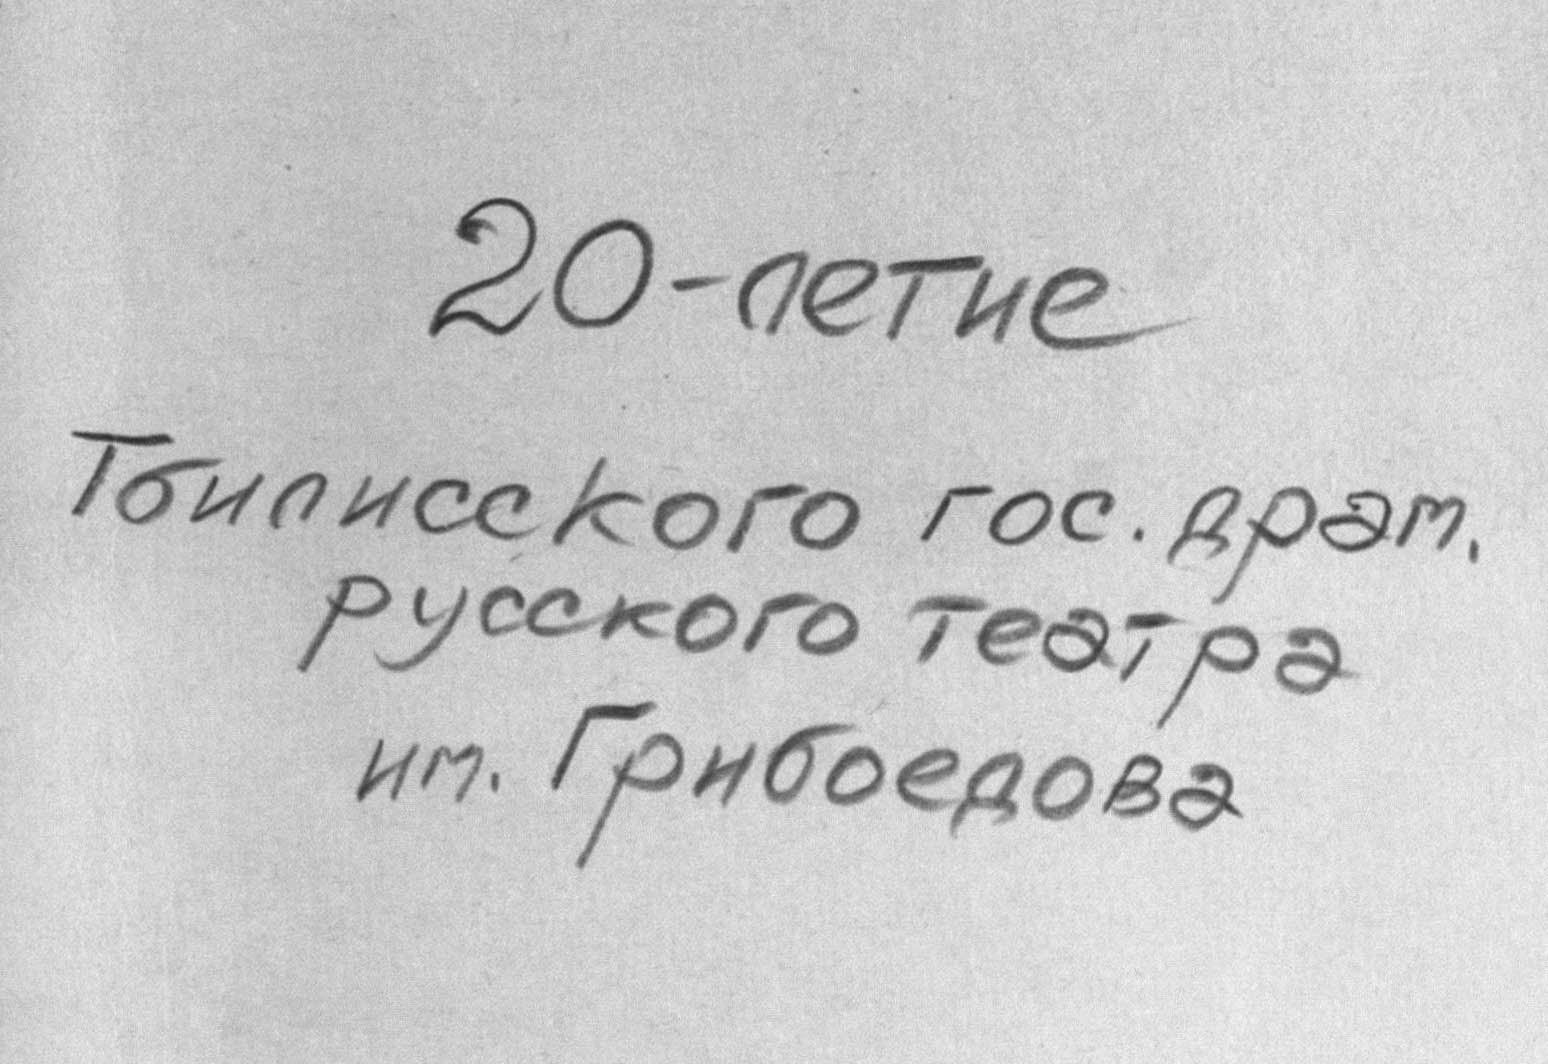 20-летие
Тбилисского гос. драм.
русского театра
им. Грибоедова